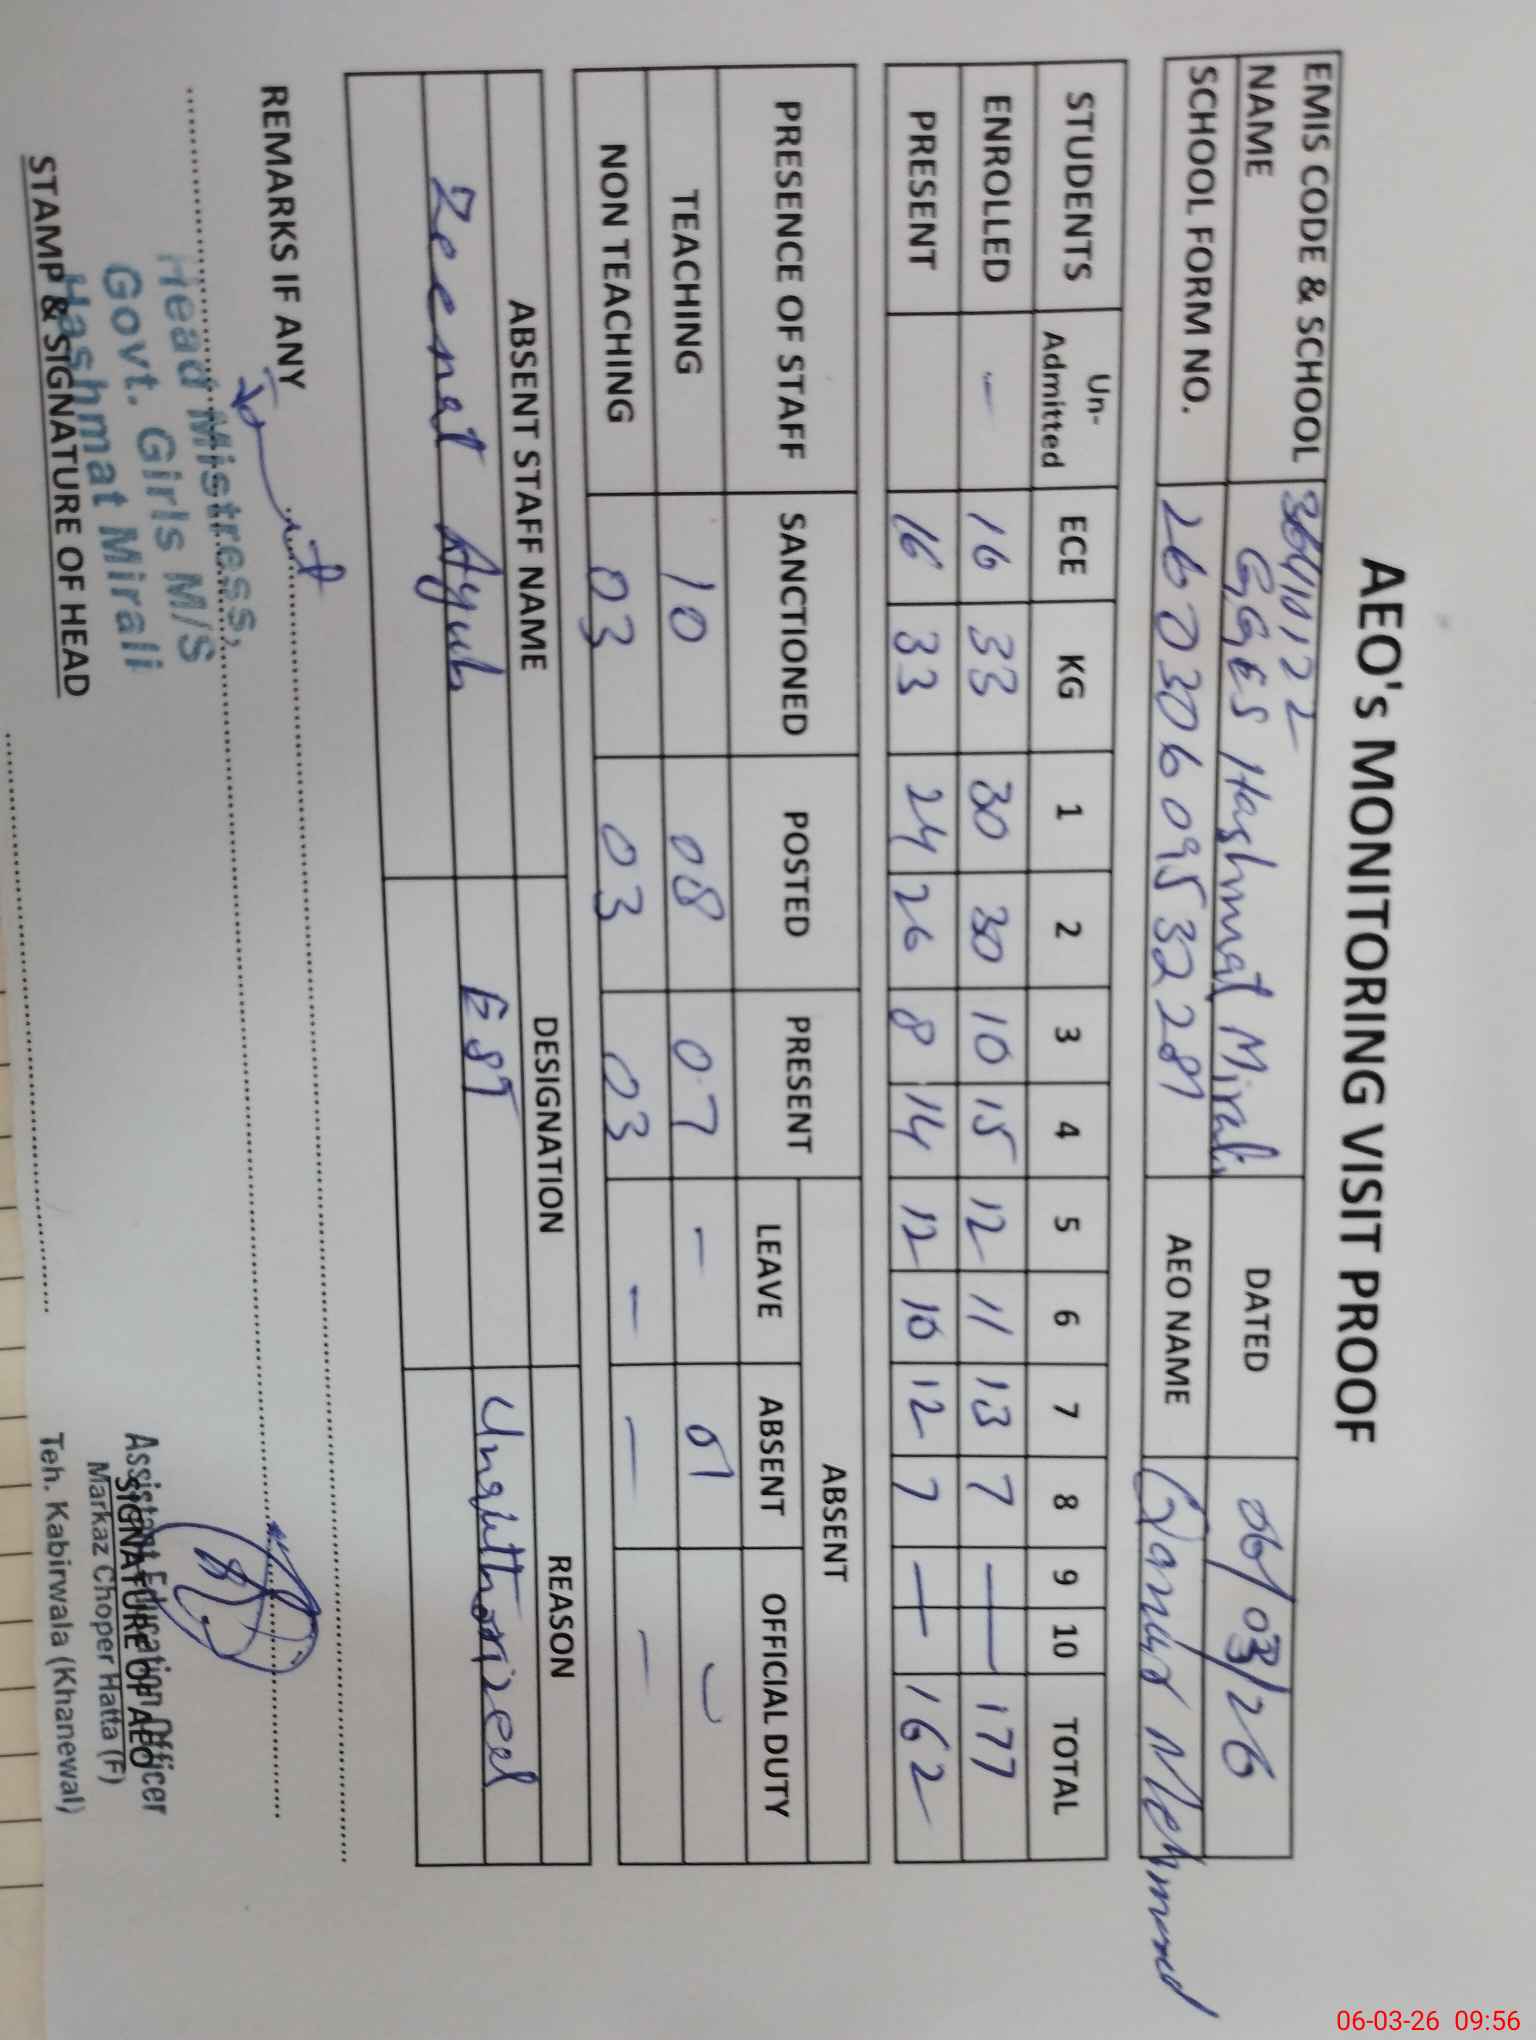 AEO's MONITORING VISIT PROOF
EMIS CODE & SCHOOL NAME 36410122 GGES Hashmat Mirali DATED 06/03/26
SCHOOL FORM NO. 26030609532281 AEO NAME Mehmood
STUDENTS Un-Admitted ECE KG 1 2 3 4 5 6 7 8 9 10 TOTAL
ENROLLED – 16 33 30 30 10 15 12 11 13 7 — 177
PRESENT 16 33 24 26 8 14 12 10 12 7 — 162
PRESENCE OF STAFF SANCTIONED POSTED PRESENT ABSENT
LEAVE ABSENT OFFICIAL DUTY
TEACHING 10 08 07 – 01 –
NON TEACHING 03 03 03 – – –
ABSENT STAFF NAME DESIGNATION REASON
Zeenat Ayub EST Unauthorized
REMARKS IF ANY
Head Mistress,
Govt. Girls M/S
Hashmat Mirali
STAMP & SIGNATURE OF HEAD
Assistant Education Officer
SIGNATURE OF AEO
Markaz Choper Hatta (F)
Teh. Kabirwala (Khanewal)
06-03-26 09:56